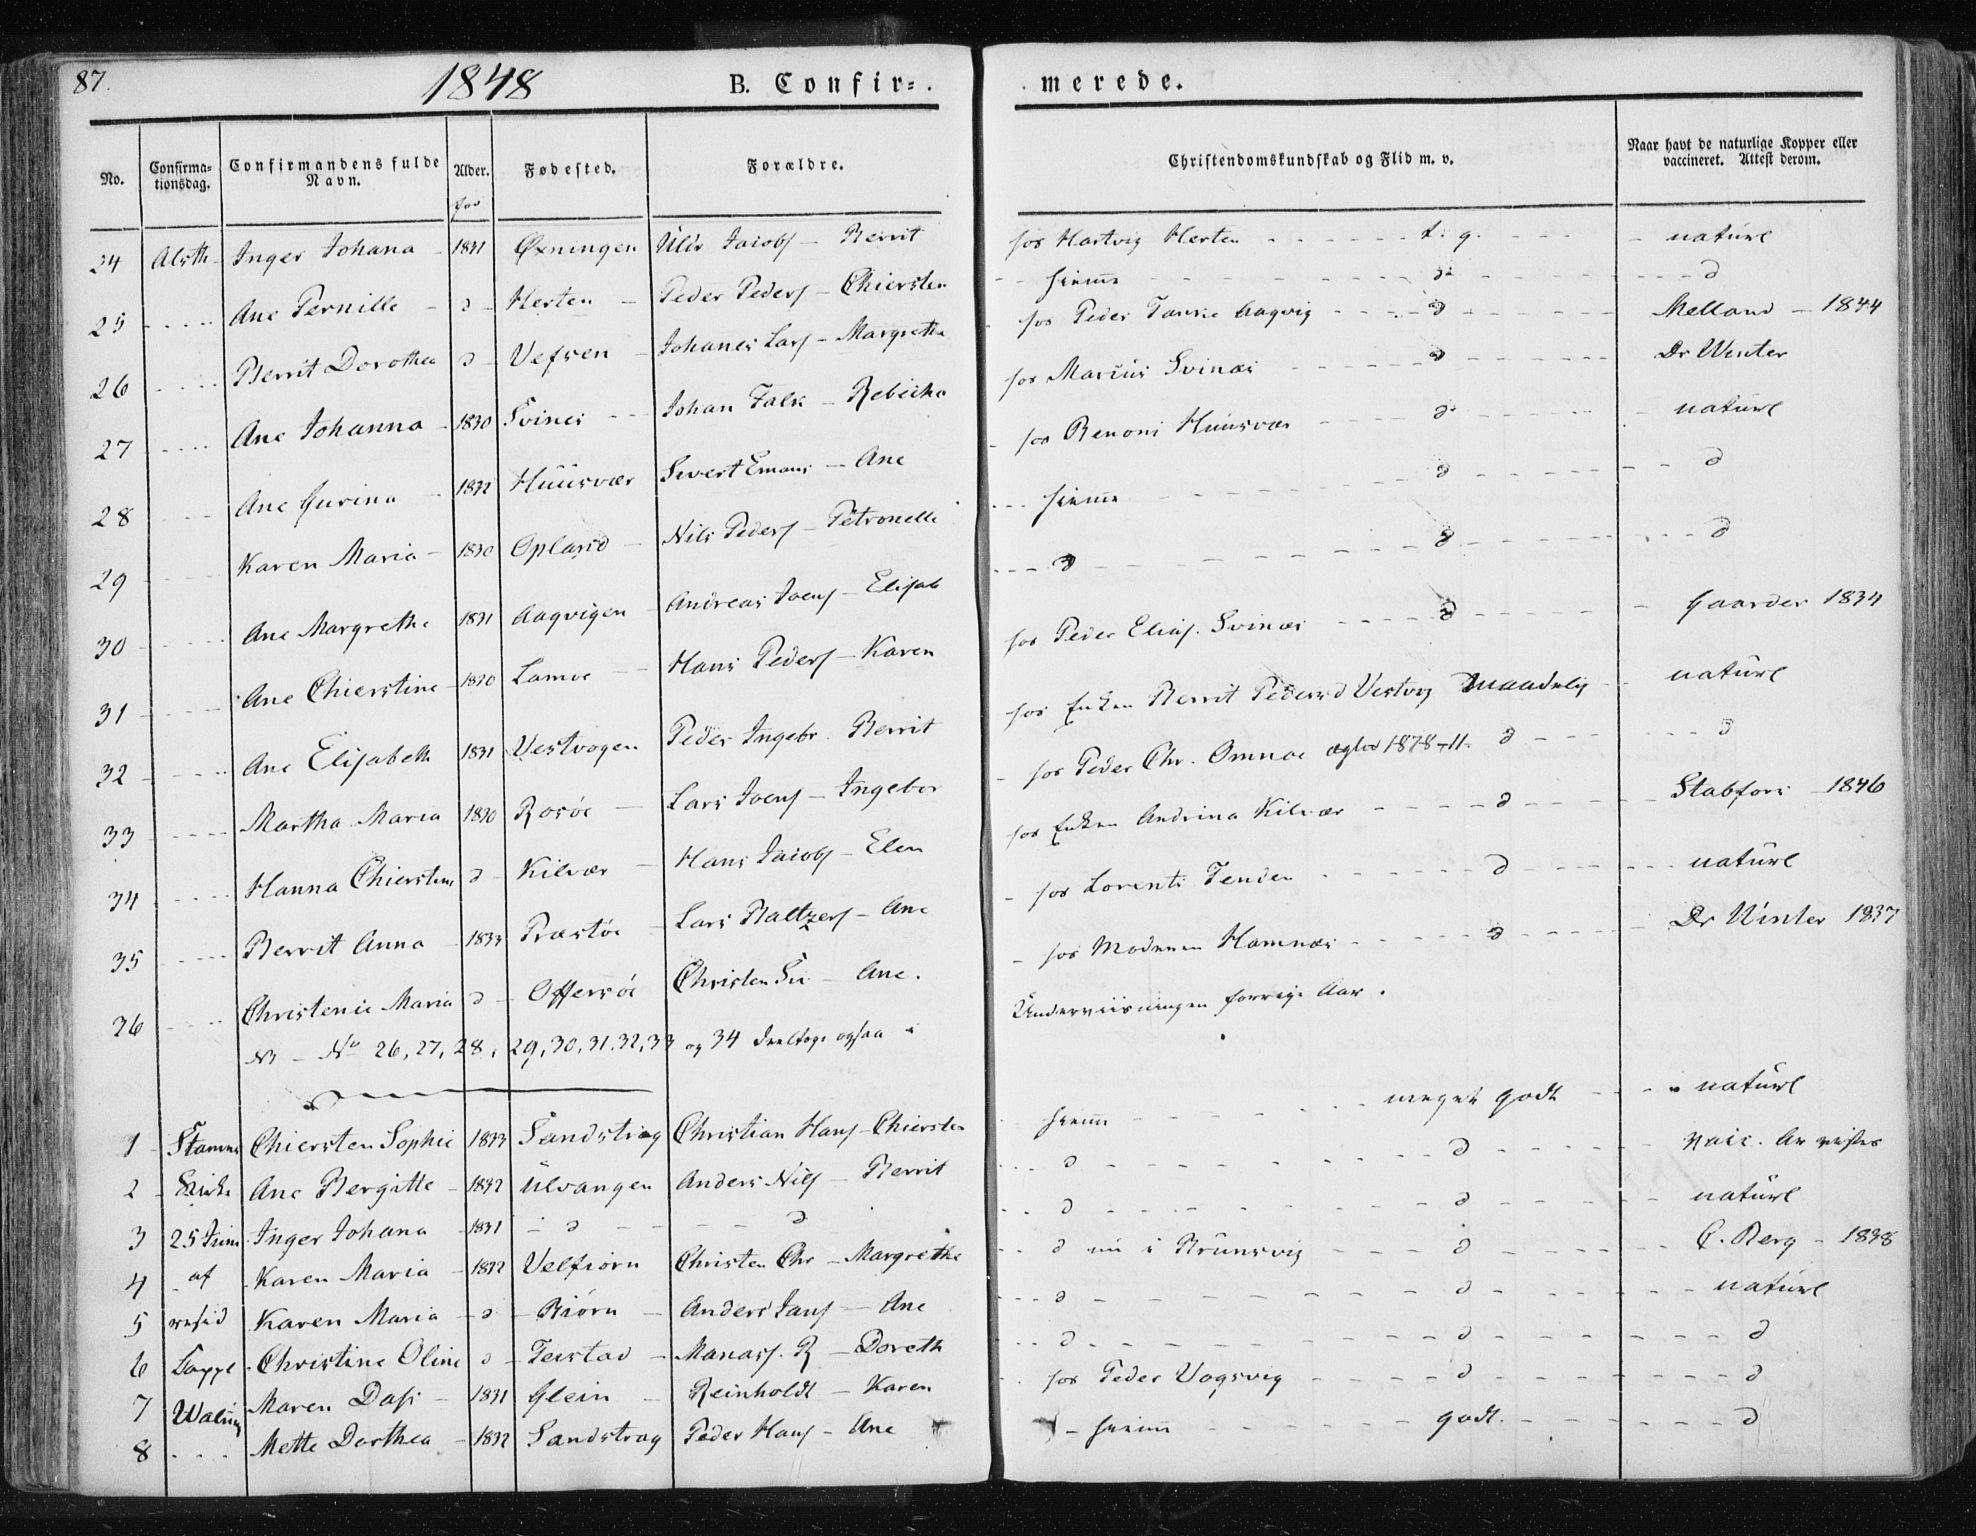 87.
1848
B. Confir=.
merede.
No.
Confirma-
tionsdag.
Confirmandens fulde
Navn.
Alder.
Fødested.
Forældre.
Christendomskundskab og Flid m. v.
Naar havt de naturlige Kopper eller
vaccineret. Attest derom.
24 Alsth - Inger Johana - 1831 Øxningen Ulir Jacobs - Berrit hos Hartvig Herten t. g. naturl
25 Ane Pernille - d - Herten - Peder Peders - Chiersten hiemme d d
26 Berrit Dorothea d - Vefsen - Johanes Lars - Margrethe hos Peder Tanke Aagvig d Melland - 1844
27 Ane Johanna - 1830 Svines - - Johan Falk - Rebecka hos Marius Svinæs d Dr Winter
28 Ane Gurina - 1832 Huusvær Sivert Emans - Ane hos Benoni Huusvær d naturl
29 Karen Maria - 1830 Opland - Nils Peders - Petronelle hiemme d d
30 Ane Margrethe 1831 Aagvigen - Andreas Joens - Elisab d d d
31 Ane Chierstine - 1830 Lamoe - Hans Peders - Karen hos Peder Elias. Svinæs d Gaarder 1834
32 Ane Elisabeth 1831 Vestvogen Peder Ingebr. Berrit hos Enken Berrit Pedersd Vestvog Maadelig naturl
33 Martha Maria 1830 Rosøe - Lars Joens - Ingebor hos Peder Chr. Omnoe 1878-11. d d
34 Hanna Chiersten d - Kilvær - Hans Jacobs - Elen hos Enken Andrina Kilvær d Stabfors - 1846
35 Berrit Anna - 1833 Præstøe - Lars Baltzers - Ane hos Lorents Tenden d naturl
36 Christence Maria d - Offersøe Christen - Ane. hos Hamnæs d Dr Winter 1837
NB - No 26, 27, 28, 29, 30, 31. 32, 33 og 34 deeltoge ogsaa i Underviisningen forrige Aar.
1 Stamnes Chiersten Sophie 1833 Sandstrag Christian Hans - Chiersten hiemm meget godt naturl
2 Kirke Ane Bergitte - 1832 Ulvangen Anders Nils - Berrit d d
3 25 Juni Inger Johana - 1831 - d - - d d d naturl
4 af Karen Maria - 1832 Velfiorn Christen Chr - Margrethe d nu i Brunsvig d C. Berg - 1838
5 resid Karen Maria - d - Biørn - Anders Jans - Ane d d naturl
6 Christine Oline d - Teistad - Manass. R - Doreth d d d
7 Maren Dass - 1831 Glein - Reinholdt - Karen hos Peder Vogsvig d d
8 Mette Dorthea - 1832 Sandstrag Peder Hans - Ane - hiemm godt. d